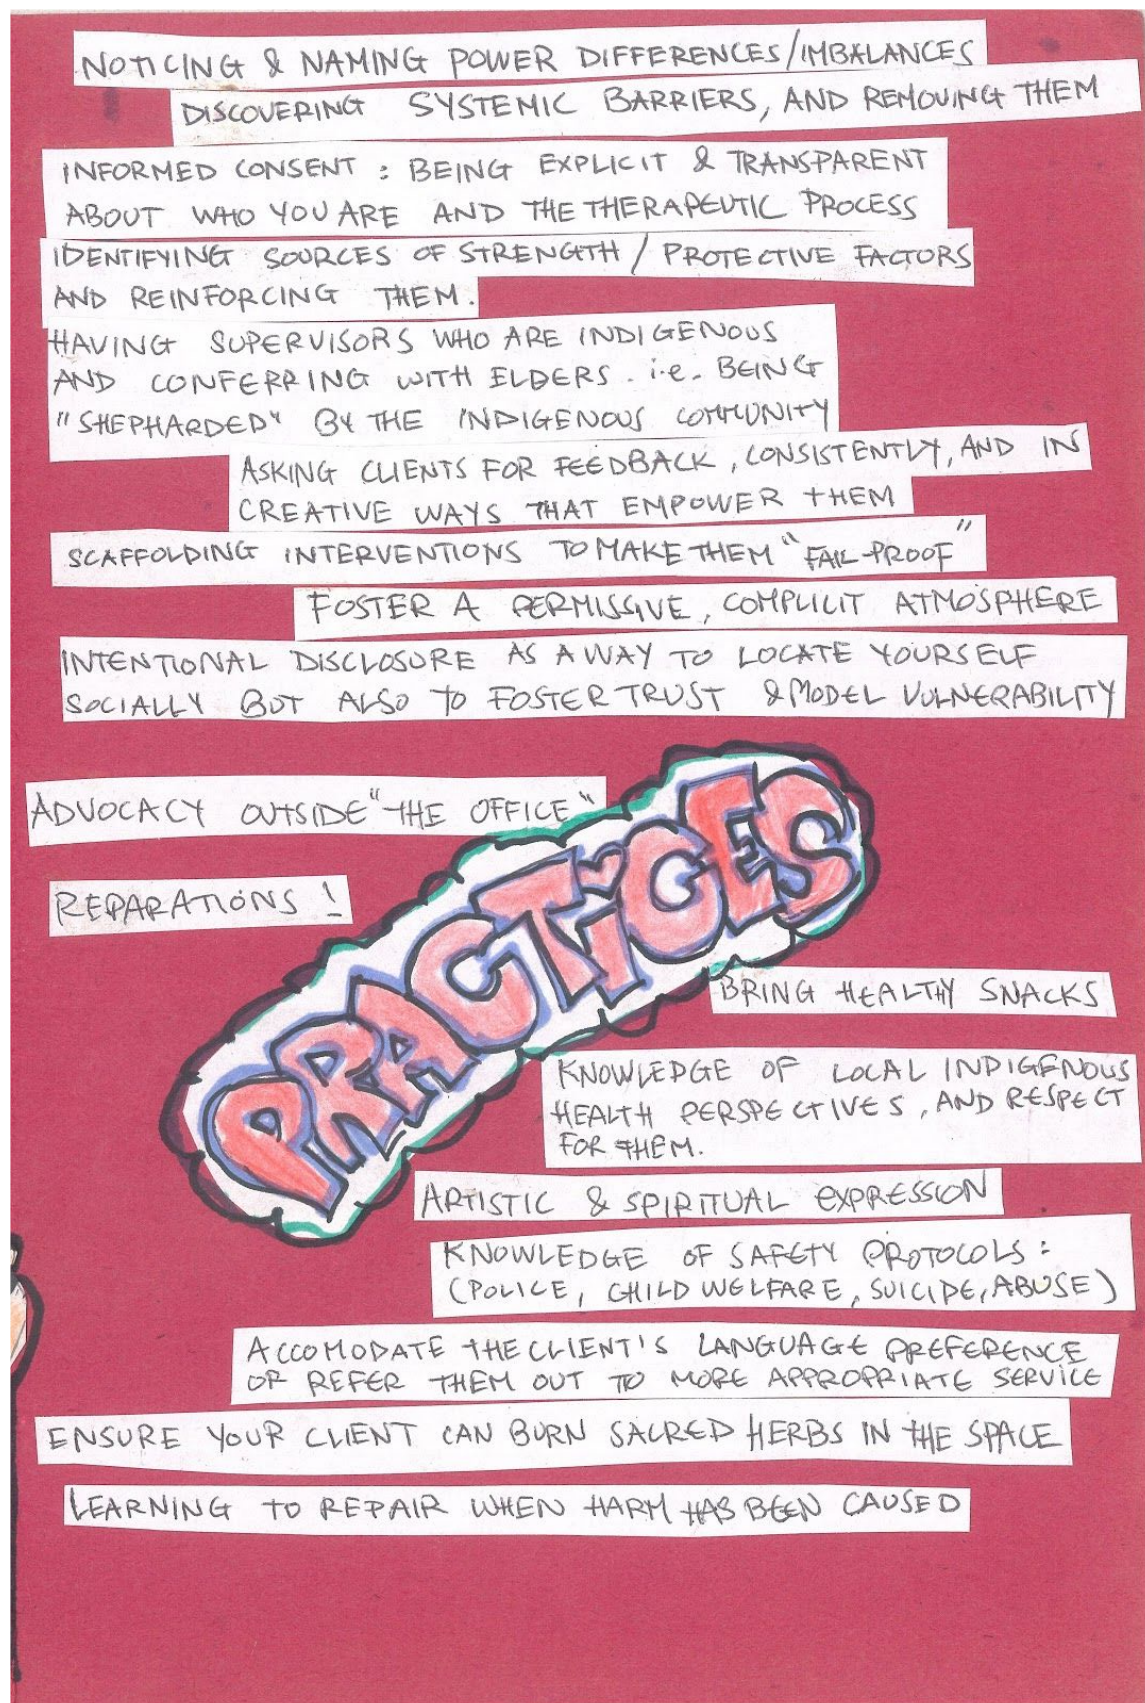 NOTICING & NAMING POWER DIFFERENCES/IMBALANCES
DISCOVERING SYSTEMIC BARRIERS, AND REMOVING THEM
INFORMED CONSENT : BEING EXPLICIT & TRANSPARENT
ABOUT WHO YOU ARE AND THE THERAPEUTIC PROCESS
IDENTIFYING SOURCES OF STRENGTH / PROTECTIVE FACTORS
AND REINFORCING THEM.
HAVING SUPERVISORS WHO ARE INDIGENOUS
AND CONFERRING WITH ELDERS. i.e. BEING
"SHEPHARDED" BY THE INDIGENOUS COMMUNITY
ASKING CLIENTS FOR FEEDBACK, CONSISTENTLY, AND IN
CREATIVE WAYS THAT EMPOWER THEM
SCAFFOLDING INTERVENTIONS TO MAKE THEM "FAIL-PROOF"
FOSTER A PERMISSIVE, COMPLICIT ATMOSPHERE
INTENTIONAL DISCLOSURE AS A WAY TO LOCATE YOURSELF
SOCIALLY BUT ALSO TO FOSTER TRUST & MODEL VULNERABILITY
ADVOCACY OUTSIDE "THE OFFICE"
REPARATIONS !
PRACTICES
BRING HEALTHY SNACKS
KNOWLEDGE OF LOCAL INDIGENOUS
HEALTH PERSPECTIVES, AND RESPECT
FOR THEM.
ARTISTIC & SPIRITUAL EXPRESSION
KNOWLEDGE OF SAFETY PROTOCOLS:
(POLICE, CHILD WELFARE, SUICIDE, ABUSE)
ACCOMODATE THE CLIENT'S LANGUAGE PREFERENCE
OR REFER THEM OUT TO MORE APPROPRIATE SERVICE
ENSURE YOUR CLIENT CAN BURN SACRED HERBS IN THE SPACE
LEARNING TO REPAIR WHEN HARM HAS BEEN CAUSED